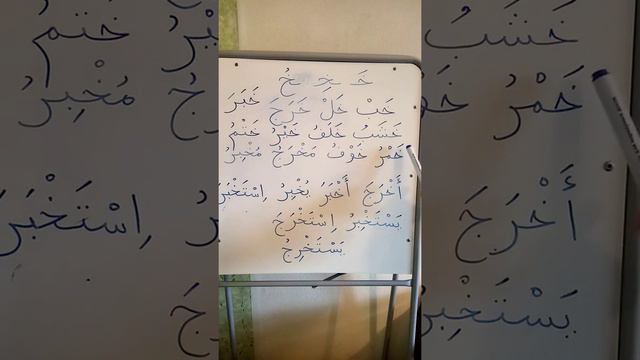 خَ خِ خُ
خَبْ خَلْ خَرَجَ خَبَرَ
خَشَبُ خَلَفُ خَيْرُ خَتْمُ
خَمْرُ خَوْفُ مَخْرَجُ مُخْبِرُ
أَخْرَجَ أَخْبَرَ يُخْبِرُ اِسْتَخْبَرَ
يَسْتَخْبِرُ اِسْتَخْرَجَ
يَسْتَخْرِجُ